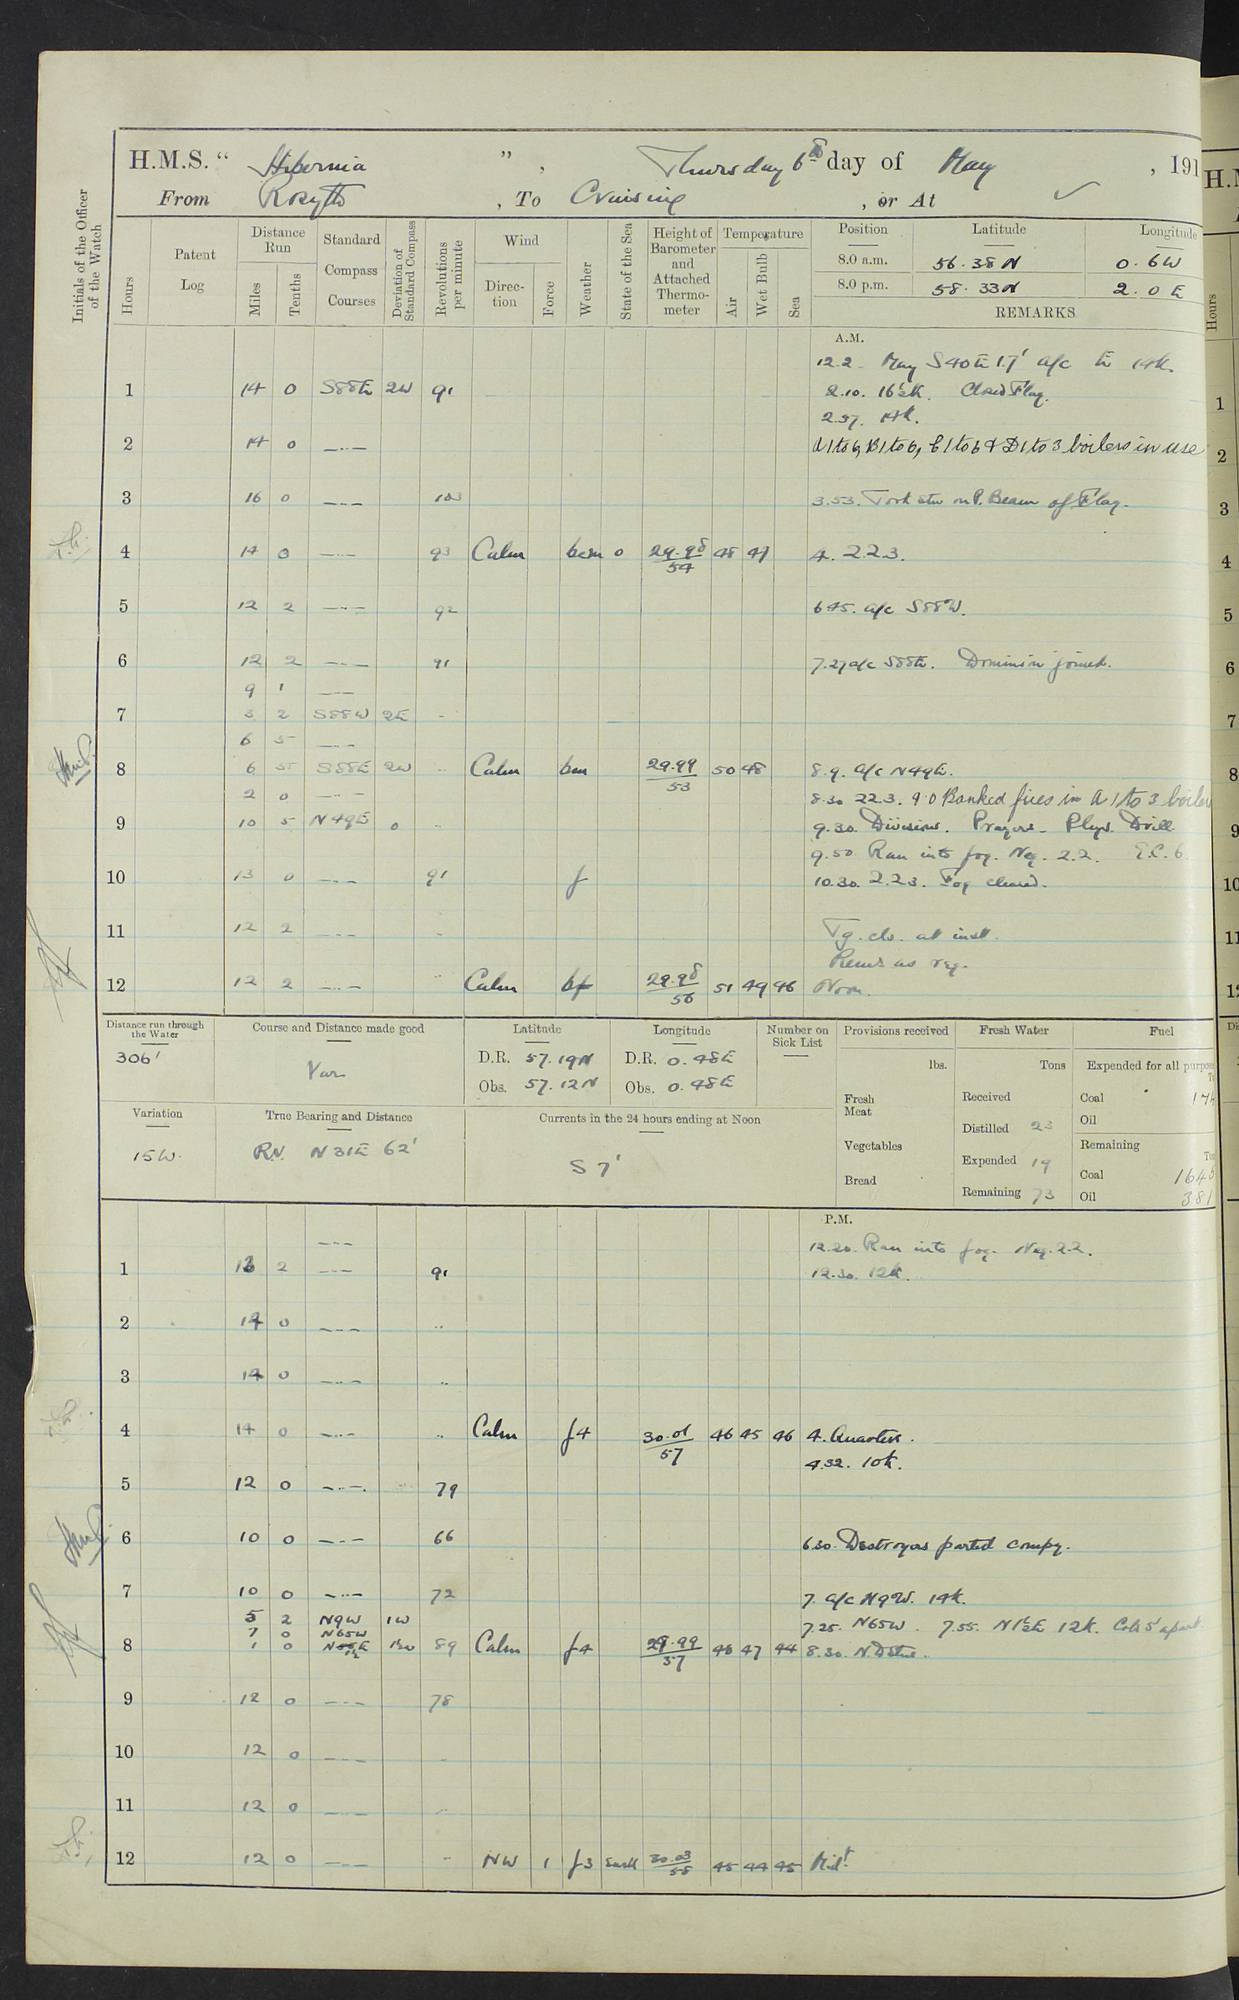 H.M.S. " Hibernia " , Thursday 6th day of May , 191
From Rosyth , To Cruising , or At
Initials of the Officer of the Watch
Hours
Patent Log
Distance Run
Miles Tenths
Standard Compass Courses
Deviation of Standard Compass
Revolutions per minute
Wind
Direction Force
Weather
State of the Sea
Height of Barometer and Attached Thermometer
Temperature
Air Wet Bulb Sea
Position Latitude Longitude
8.0 a.m. 56.38 N 0.6 W
8.0 p.m. 58.33 N 2.0 E
REMARKS
A.M.
12.2 S40E 1.7' a/c E 14k.
1 14 0 S88E 2W 91 2.10. 16½k. Closed Flag.
2.37. 14k.
2 14 0 —..— A1 to 6, B1 to 6, C1 to 6 & D1 to 3 boilers in use
3 16 0 —..— 103 3.53. Took stn on P. Beam of Flag.
4 14 0 —..— 93 Calm bcm 0 29.98/54 48 47 4. 2.2.3.
5 12 2 —..— 92 6.45. a/c S88W.
6 12 2 —..— 91 7.27 a/c S88E. Dominion joined.
9 1 —..—
7 3 2 S88W 2E ..
6 5 —..—
8 6 5 S88E 2W .. Calm bm 29.99/53 50 48 8.9. a/c N49E.
2 0 —..— 8.30 2.2.3. 9.0 Banked fires in A 1 to 3 boilers
9 10 5 N49E 0 .. 9.30. Divisions. Prayers. Phys. Drill
9.50. Ran into fog. Neg. 2.2.
10 13 0 —..— 91 f 10.30. 2.2.3. Fog cleared.
11 12 2 —..— .. Tg. clo. at inst.
Rems as reg.
12 12 2 —..— .. Calm bf 29.98/56 51 49 46 Noon.
Distance run through the Water
306'
Course and Distance made good
Var.
Latitude
D.R. 57.19N
Obs. 57.12N
Longitude
D.R. 0.48E
Obs. 0.48E
Number on Sick List
Provisions received
lbs.
Fresh Meat
Vegetables
Bread
Fresh Water
Tons
Received
Distilled 23
Expended 19
Remaining 73
Fuel
Expended for all purpose
Coal
Oil
Remaining
Coal
Oil 381
Variation
15W.
True Bearing and Distance
N 31E 62'
Currents in the 24 hours ending at Noon
S 7'
P.M.
—..— 12.20. Ran into fog. Neg. 2.2.
1 13 2 —..— 91 12.30. 12k.
2 14 0 —..— ..
3 14 0 —..— ..
4 14 0 —..— .. Calm f4 30.01/57 46 45 46 4. Quarters.
4.32. 10k.
5 12 0 —..— 79
6 10 0 —..— 66 6.30. Destroyers parted compy.
7 10 0 —..— 72 7. a/c N9W. 14k.
5 2 N9W 1W 7.25. N65W. 7.55. N½E 12k. Cols 5' apart
7 0 N65W
8 1 0 N½E 89 Calm f4 29.99/57 48 47 44 8.30.
9 12 0 —..— 78
10 12 0 —..— ..
11 12 0 —..— ..
12 12 0 —..— .. NW 1 f3 Swell 30.03/55 45 44 45 Midt.